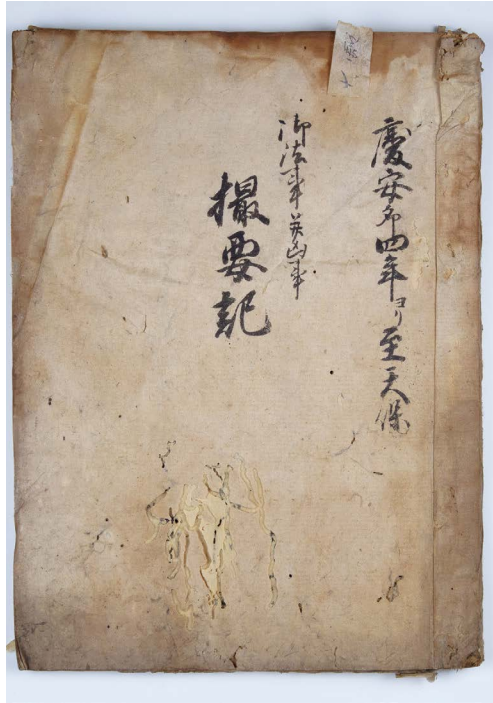 慶安第四年ヨリ至天保
御法事并凶事
撮要記